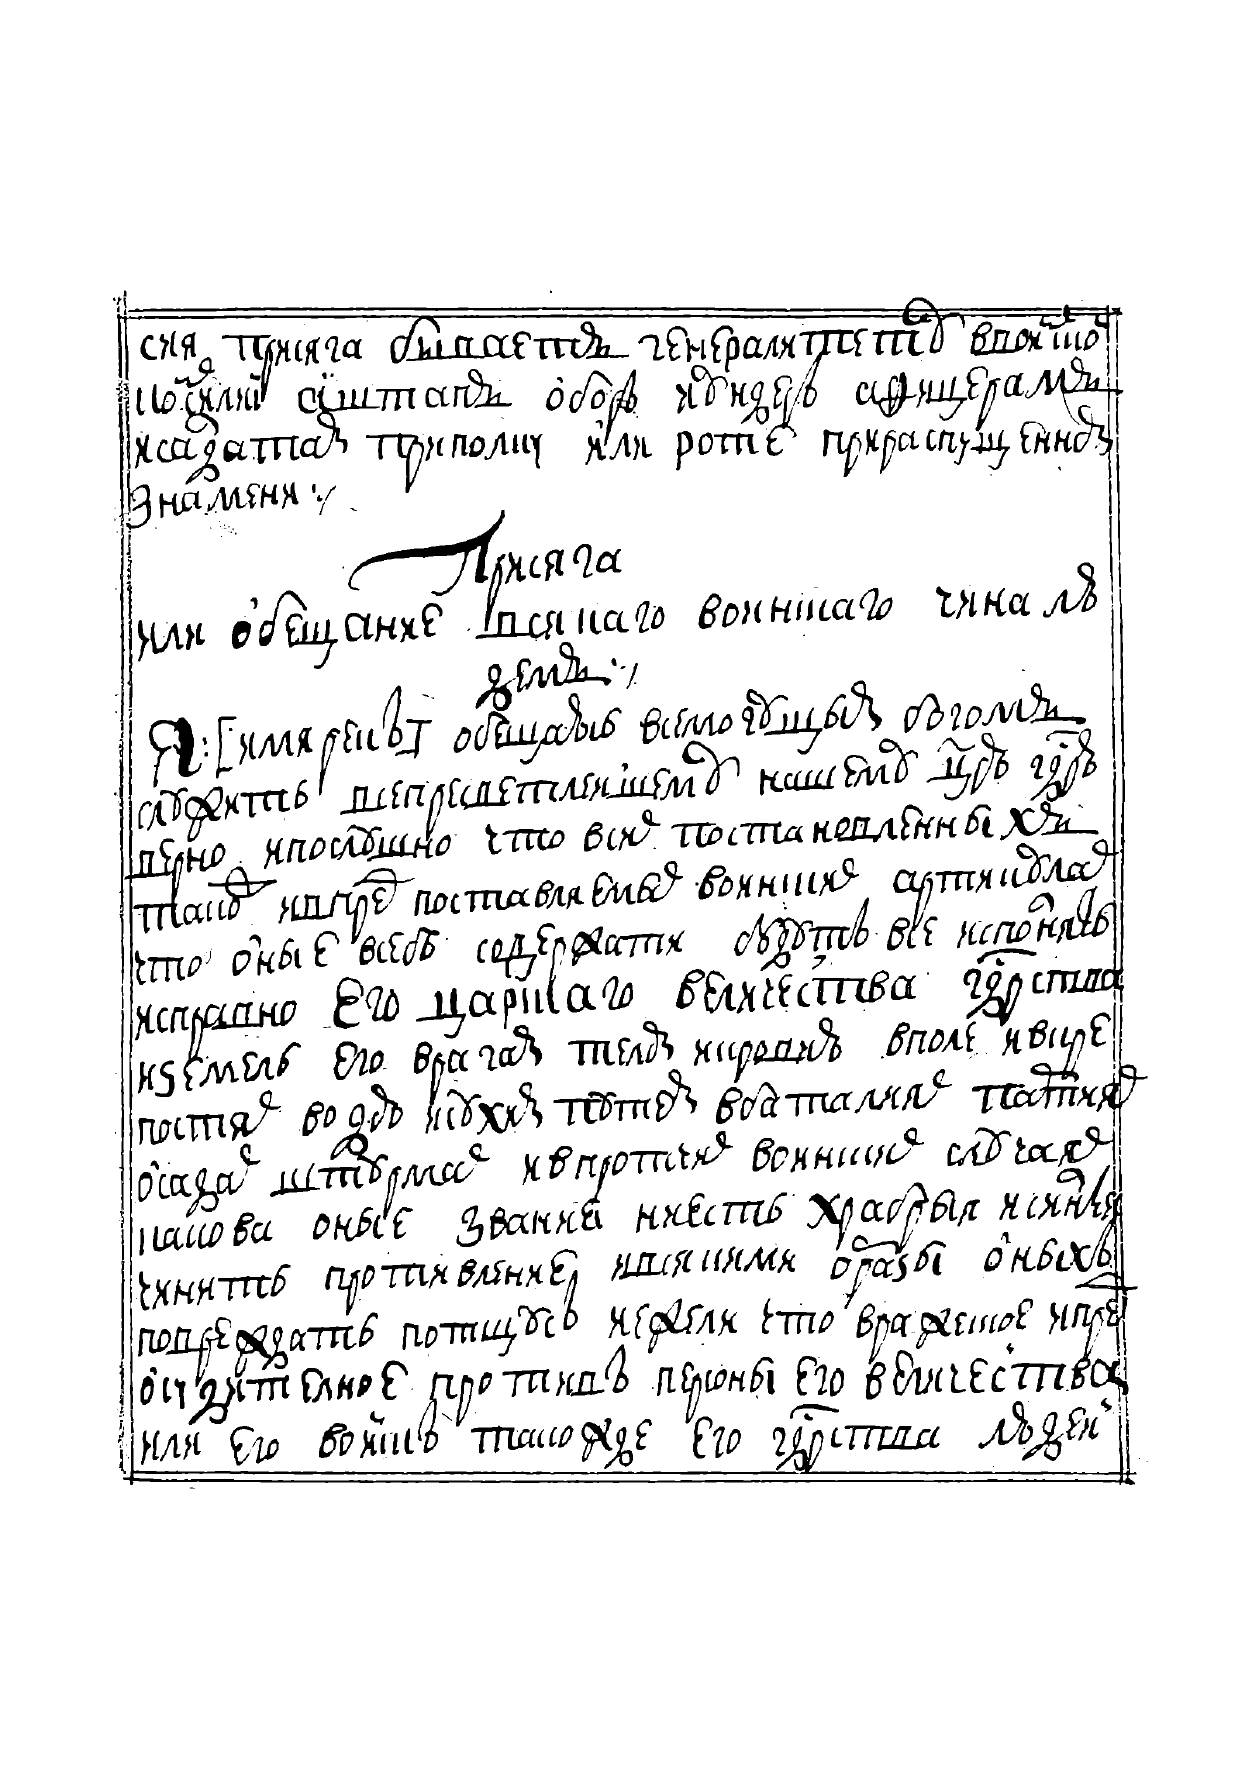 сия присяга бываетъ генералитетȣ в воинско
консилиi а штапъ обор и ȣндер афицерамъ
и салдатам при полкȣ или роте при распущенном
знамени :/
Присяга
или обещание всякаго воинскаго чина лю
демъ :/
Я: [имярекъ] обещаюсь всемогущым богомъ
слȣжить всепресветлейшемȣ нашемȣ црю гдрю
верно и послȣшно что в сих постановленныхъ
такȣ и впред поставляемых воинских артикȣлах
что оные в себѣ содержати бȣдȣтъ все исполнять
исправно его царскаго величества гдрства
и земель его врагам телом и кровию в поле и в кре
постях водою и сȣхим пȣтем в баталиях партиях
осадах штȣрмах и в протчих воинских слȣчаях
какова оные звания и есть храбрыя и силныя
чинить противление и всякими образы оныхъ
повреждать потщȣсь и ежели что вражеское и пре
осȣдителное противъ персоны его величества
или его войскъ такожде его гдрства людей